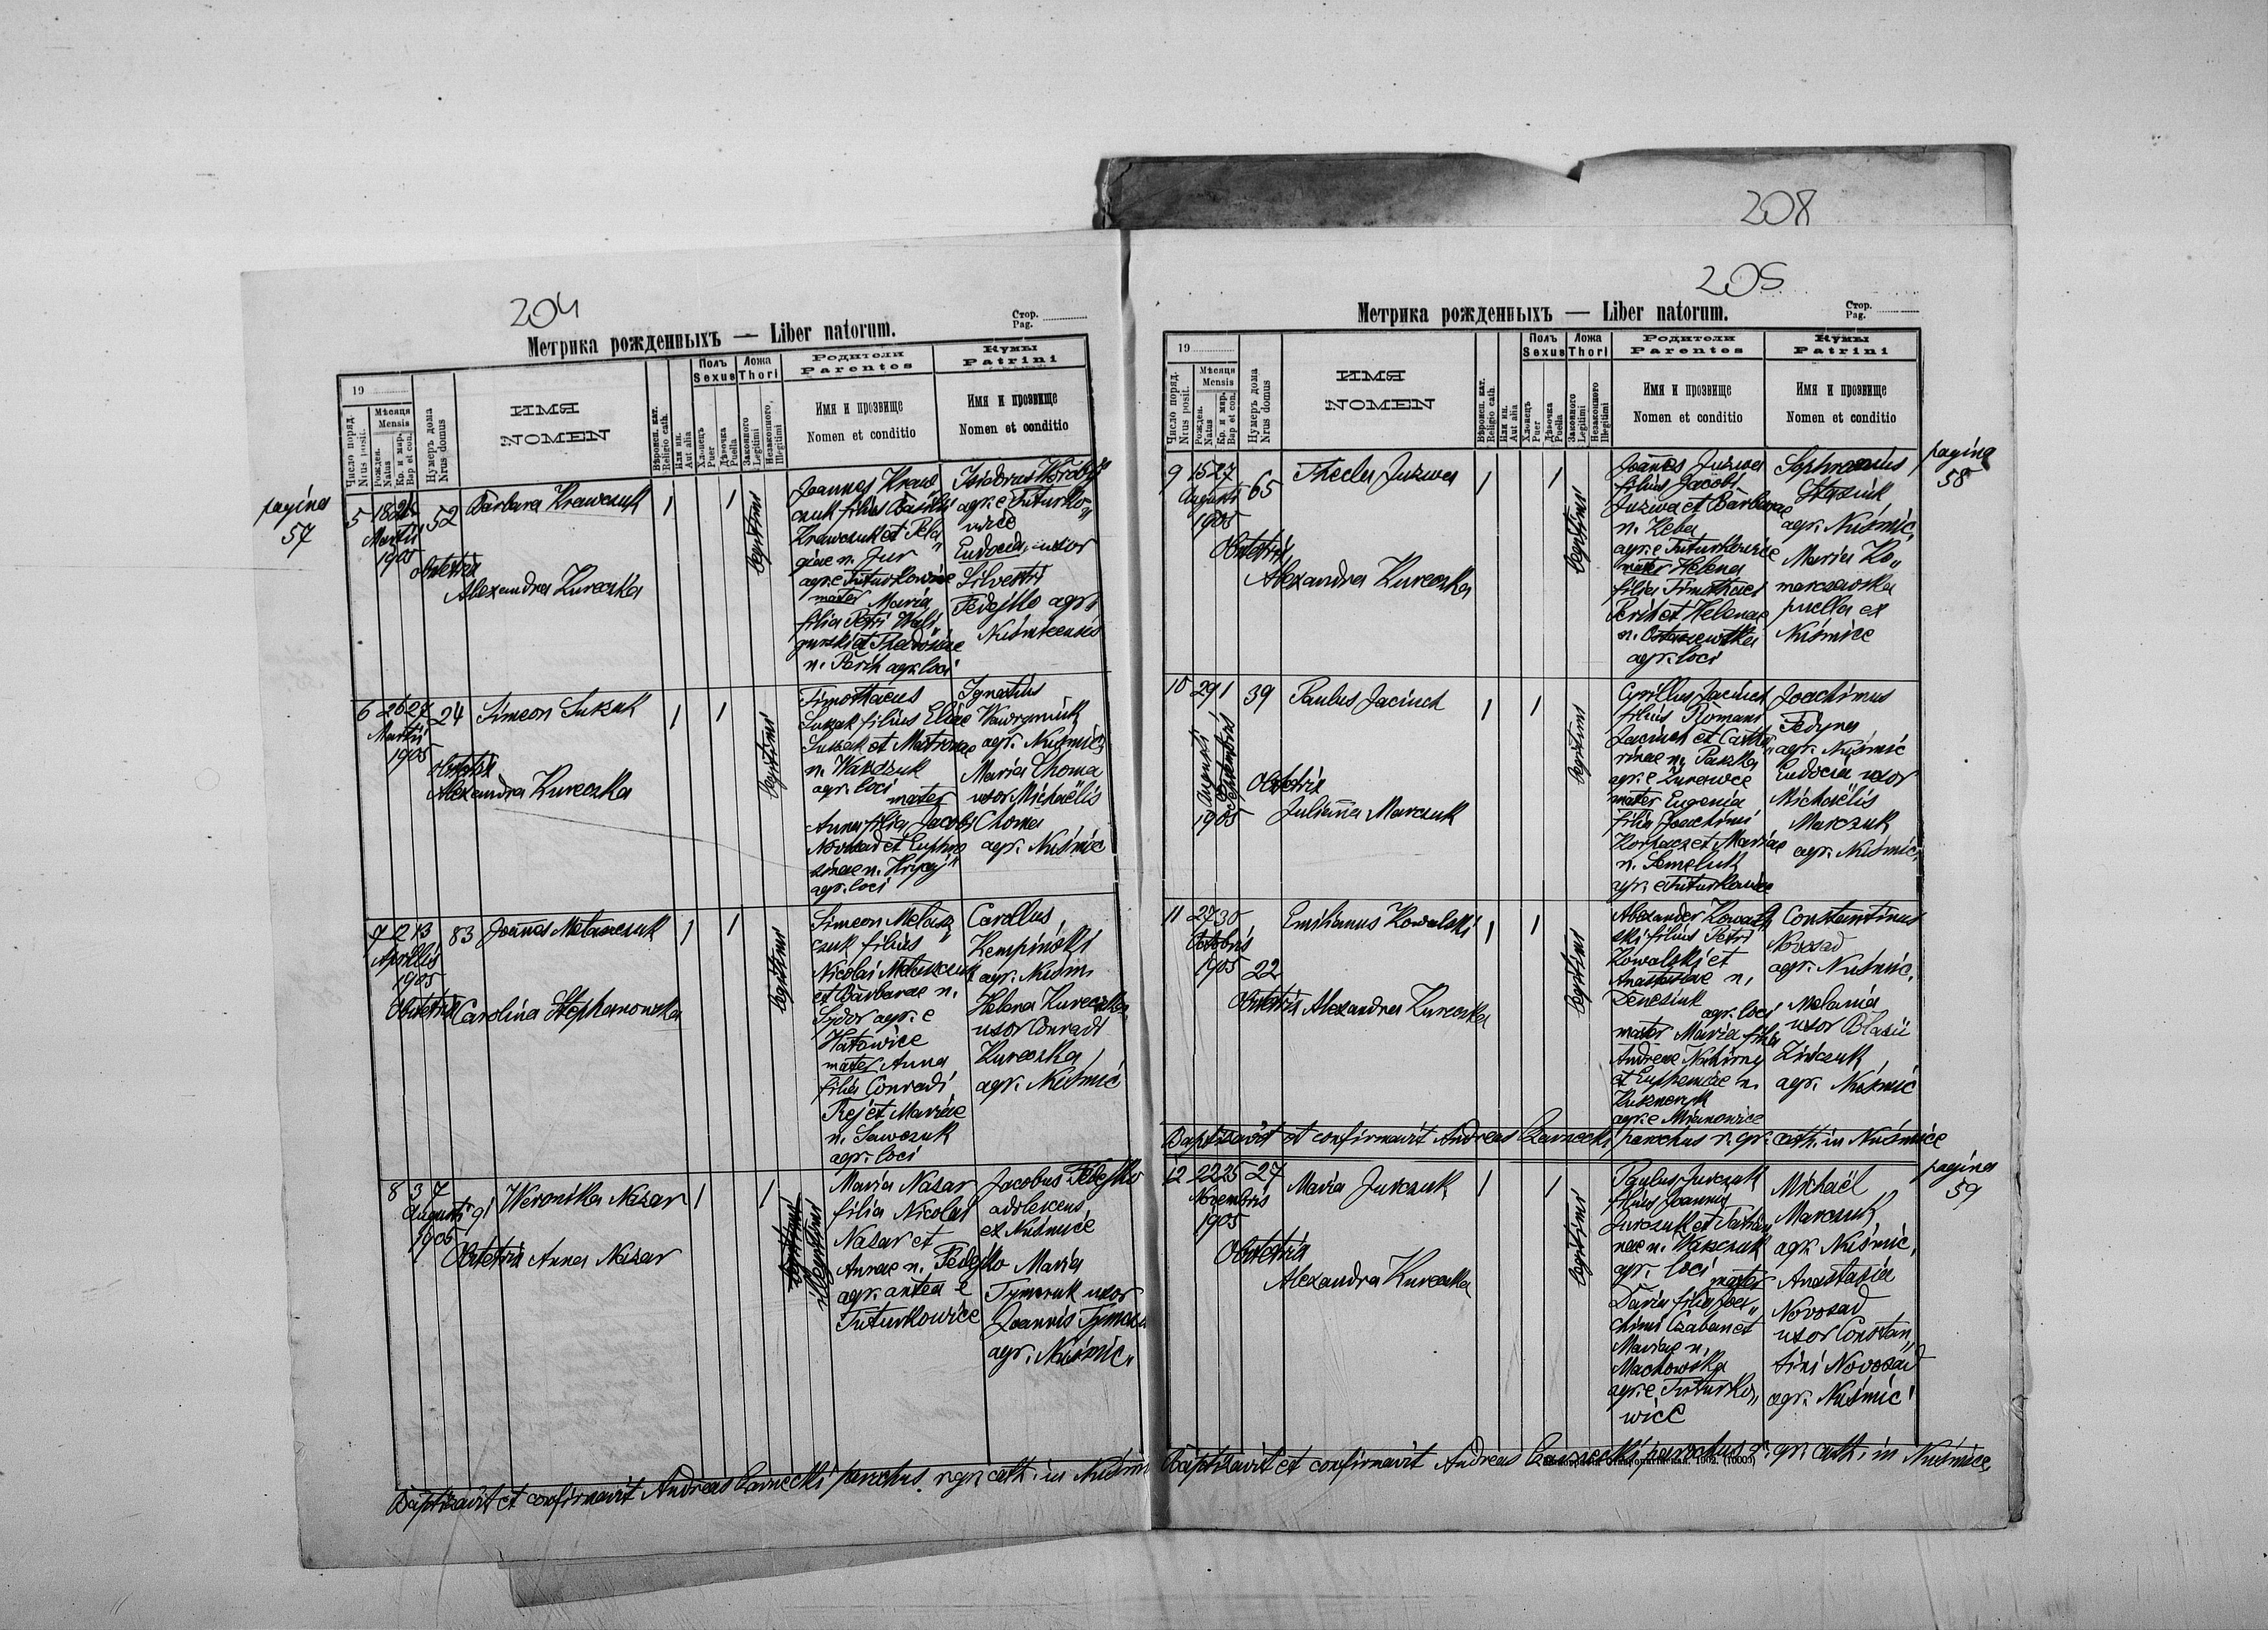 208
204
Метрика рожденныхъ — Liber natorum.
Стор.
Pag.
19
Число поряд.
Nrus posit.
Мѣсяця
Mensis
Рожден.
Natus
Кр. и мир.
Bap et con.
Нумеръ дома
Nrus domus
ИМЯ
NOMEN
Вѣроисп. кат.
Religio cath.
Или ин.
Aut alia
Полъ
Sexus
Хлопецъ
Puer
Дѣвочка
Puella
Ложа
Thori
Законного
Legitimi
Незаконного
Illegitimi
Родители
Parentes
Имя и прозвище
Nomen et conditio
Кумы
Patrini
Имя и прозвище
Nomen et conditio
pagina
57
5
Martii
1905
52
Barbara Krawczuk
1
1
legitimi
obstetrix
Alexandra Kureczka
Joannes Kraw
czuk filius Basilii
Krawczuk et Pela„
giae n. Jur
agr. e Tuturkowice
mater Maria
filia Petri Wali„
gurski et Theodosiae
n. Parih agr. loci
Isidorus Worobij
agr. e Tuturko„
wice
Eudocia uxor
Silvestri
Fedejko agr.
Nuśmicensis
6
26 27
Martii
1905
24
Simeon Suszk
1
1
legitimi
obstetrix
Alexandra Kureczka
Timothaeus
Suszak filius Eliae
Suszak et Matronae
n. Waszczuk
agr. loci
mater
Anna filia Jacobi
Novosad et Euphro
sinae n. Hrycaj
agr. loci
Ignatius
Wawryniuk
agr. Nuśmic.
Maria Choma
uxor Michaëlis
Choma
agr. Nuśmic
7
2 13
Aprilis
1905
83
Joannes Metaszczuk
1
1
legitimi
Obstetrix Carolina Stephanowska
Simeon Metasz
czuk filius
Nicolai Metaszczuk
et Barbarae n.
Sydor agr. e
Hatowice
mater Anna
filia Conradi
Rej et Mariae
n. Sawczuk
agr. loci
Carollus
Kempiński
agr. Nuśm.
Helena Kureczka
uxor Conradi
Kureczka
agr. Nuśmic
8
3 7
Augusti
1905
91
Weronika Nazar
1
1
legitimi
illegitimi
Obstetrix Anna Nazar
Maria Nazar
filia Nicolai
Nazar et
Annae n. Fedejko
agr. antea e
Tuturkowice
Jacobus Fedejko
adolescens
ex Nuśmice
Maria
Tymczuk uxor
Joannis Tymczu
agr. Nuśmic.
Baptizavit et confirmavit Andreas Czarnecki parochus r. gr. cath. in Nuśmi
205
Метрика рожденныхъ — Liber natorum.
Стор.
Pag.
19
Число поряд.
Nrus posit.
Мѣсяця
Mensis
Рожден.
Natus
Кр. и мир.
Bap et con.
Нумеръ дома
Nrus domus
ИМЯ
NOMEN
Вѣроисп. кат.
Religio cath.
Или ин.
Aut alia
Полъ
Sexus
Хлопецъ
Puer
Дѣвочка
Puella
Ложа
Thori
Законного
Legitimi
Незаконного
Illegitimi
Родители
Parentes
Имя и прозвище
Nomen et conditio
Кумы
Patrini
Имя и прозвище
Nomen et conditio
pagina
58
9
15 27
Augusti
1905
65
Thecla Juzwa
1
1
legitimi
Obstetrix
Alexandra Kureczka
Joannes Juzwa
filius Jacobi
Juzwa et Barbarae
n. Keba
agr. e Tuturkowice
mater Helena
filia Timothaei
Parih et Helenae
n. Ostaszewska
agr. loci
Sophronius
Staziuk
agr. Nuśmic.
Maria Ko„
marczewska
puella ex
Nuśmice
10
29 1
Augusti
Septembris
1905
39
Paulus Jaciuch
1
1
legitimi
Obstetrix
Julianna Marczuk
Cyrillus Jaciuch
filius Romani
Jaciuch et Cathe„
rinae n. Paszka
agr. e Żurowice
mater Eugenia
filia Joachimi
Korhacz et Mariae
n. Semeluk
agr. e Tuturkowice
Joachimus
Fedyna
agr. Nuśmic
Eudocia uxor
Michaëlis
Marczuk
agr. Nuśmic.
11
27 30
Octobris
1905
22
Emilianus Kowalski
1
1
legitimi
Obstetrix Alexandra Kureczka
Alexander Kowal
ski filius Petri
Kowalski et
Anastasiae n.
Denesiuk
agr. loci
mater Maria filia
Andreae Nahirny
et Euphemiae n.
Kuszneryk
agr. e Mianowice
Constantinus
Novosad
agr. Nuśmic.
Melania
uxor Blasii
Zińczuk
agr. Nuśmic
Baptizavit et confirmavit Andreas Czarnecki parochus r. gr. cath. in Nuśmice
pagina
59
12
22 25
Novembris
1905
27
Maria Jurczuk
1
1
legitimi
Obstetrix
Alexandra Kureczka
Paulus Jurczuk
filius Joannis
Jurczuk et Tatia„
nae n. Waszczuk
agr. loci
mater
Daria filia Joa„
chimi Czaban et
Mariae n.
Machowska
agr. e Tuturko„
wice
Michaël
Marczuk
agr. Nuśmic.
Anastasia
Novosad
uxor Constan„
tini Novosad
agr. Nuśmic
Baptizavit et confirmavit Andreas Czarnecki parochus r. gr. cath. in Nuśmice